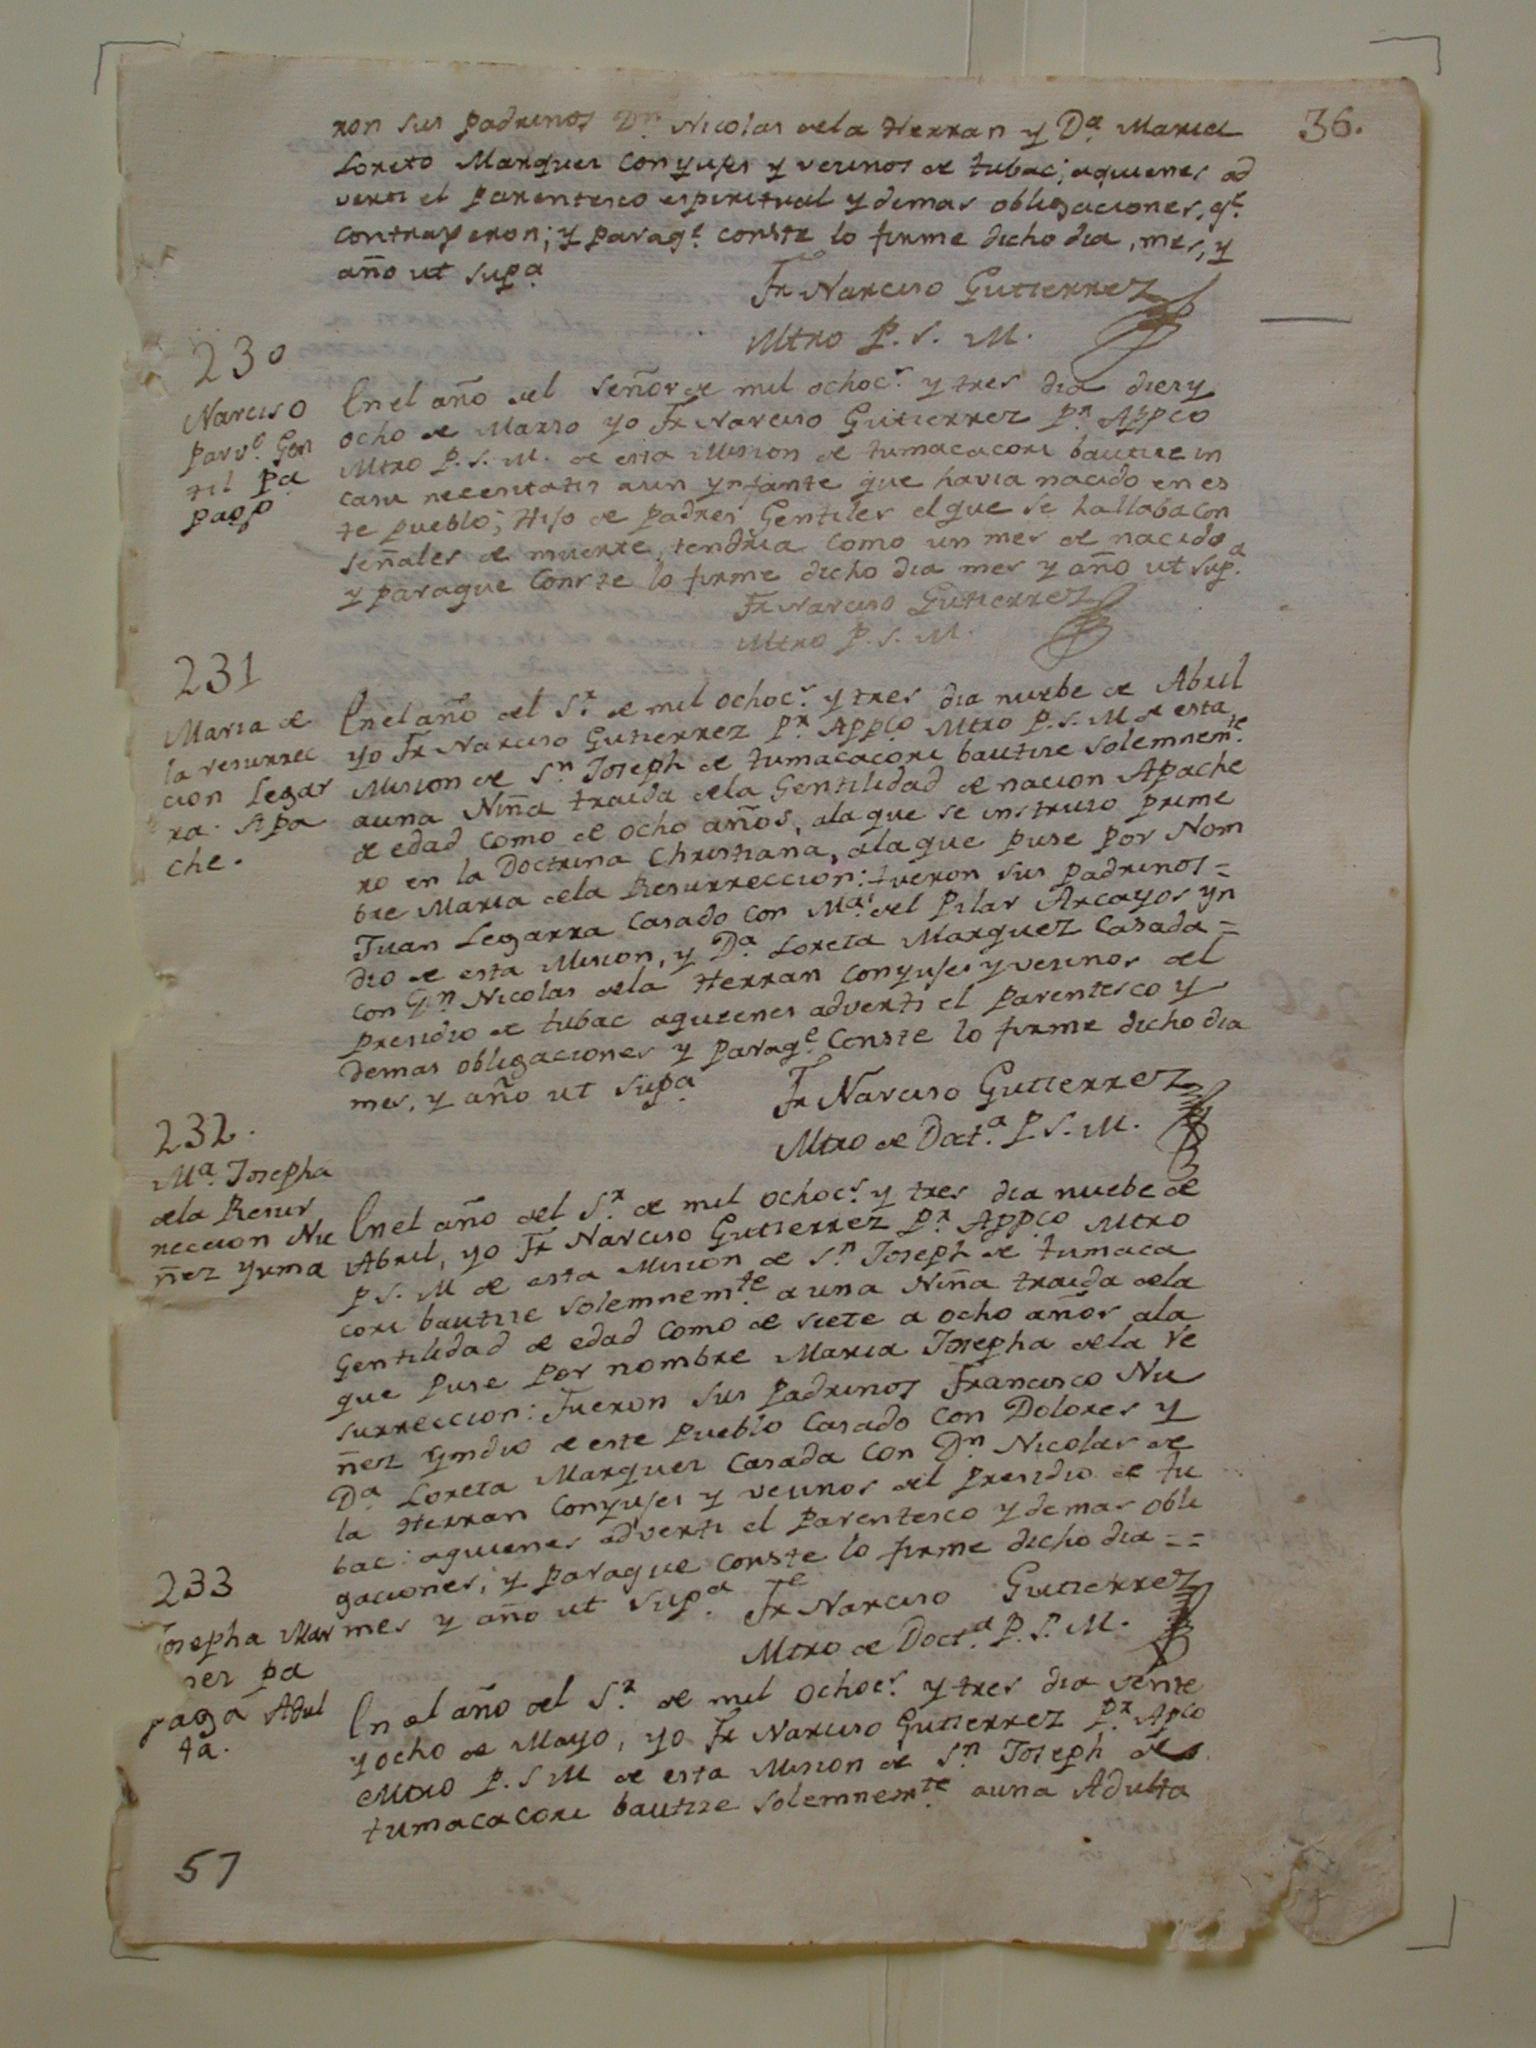 36.
ron sus padrinos Dn. Nicolas de la Herran y Da. Maria
Loreto Marques conyujes y vecinos de tubac; aquienes ad
verti el parentesco espiritual y demas obligaciones, qe.
contrayeron; y paraqe. conste lo firme dicho dia, mes, y
año ut supa.
Fr Narciso Gutierrez
Mtro P. S. M.
230
Narciso
parvo. Gen
til Pa
pago
En el año del Señor de mil ochocs. y tres dia diez y
ocho de Marzo yo Fr Narciso Gutierrez Pr. Appco
Mtro P. S. M. de esta Mision de tumacacori bautize in
casu necesitatis aun ynfante que havia nacido en es
te pueblo; Hijo de padres Gentiles el que se hallaba con
señales de muerte, tendria como un mes de nacido
y paraque conste lo firme dicho dia mes y año ut supa.
Fr Narciso Gutierrez
Mtro P. S. M.
231
Maria de
la resurrec
cion Legar
ra. Apa
che.
En el año del Sr. de mil ochocs. y tres dia nuebe de Abril
yo Fr Narciso Gutierrez Pr. Appco Mtro P. S. M de esta
Mision de Sn. Joseph de tumacacori bautize solemnemte.
auna Niña traida dela Gentilidad de nacion Apache
de edad como de ocho años, ala que se instruio prime
ro en la Doctrina Christiana, ala que puse por Nom
bre Maria dela Resurreccion: fueron sus padrinos =
Juan Legarra casado con Ma. del Pilar Arcayos yn
dio de esta Mision, y Da. Loreta Marquez casada =
con Dn Nicolas dela Herran conyujes y vesinos del
presidio de tubac aquienes adverti el parentesco y
demas obligaciones y paraqe. conste lo firme dicho dia
mes, y año ut supa.
Fr Narciso Gutierrez
Mtro de Doct.a P. S. M.
232.
Ma. Josepha
dela Resur
reccion Nu
ñez yuma
En el año del Sr. de mil ochocs. y tres dia nuebe de
Abril, yo Fr Narciso Gutierrez Pr. Appco Mtro
P. S. M de esta Mision de Sn. Joseph de tumaca
cori bautize solemnemte. a una Niña traida dela
Gentilidad de edad como de siete a ocho años ala
que puse por nombre Maria Josepha dela Re
surreccion: fueron sus padrinos Francisco Nu
ñez yndio de este pueblo casado con Dolores y
Da. Loreta Marques casada con Dn Nicolas de
la Herran conyujes y vecinos del presidio de tu
bac: aquienes adverti el parentesco y demas obli
gaciones; y paraque conste lo firme dicho dia = =
mes y año ut supa.
Fr Narciso Gutierrez
Mtro de Doct.a P. S. M.
233
Josepha Mar
pa
Adul
ta.
En el año del Sr. de mil ochocs. y tres dia vente
y ocho de Mayo, yo Fr Narciso Gutierrez Pr. Apco
Mtro P. S M de esta Mision de Sn. Joseph de
tumacacori bautize solemnemte. auna Adulta
57